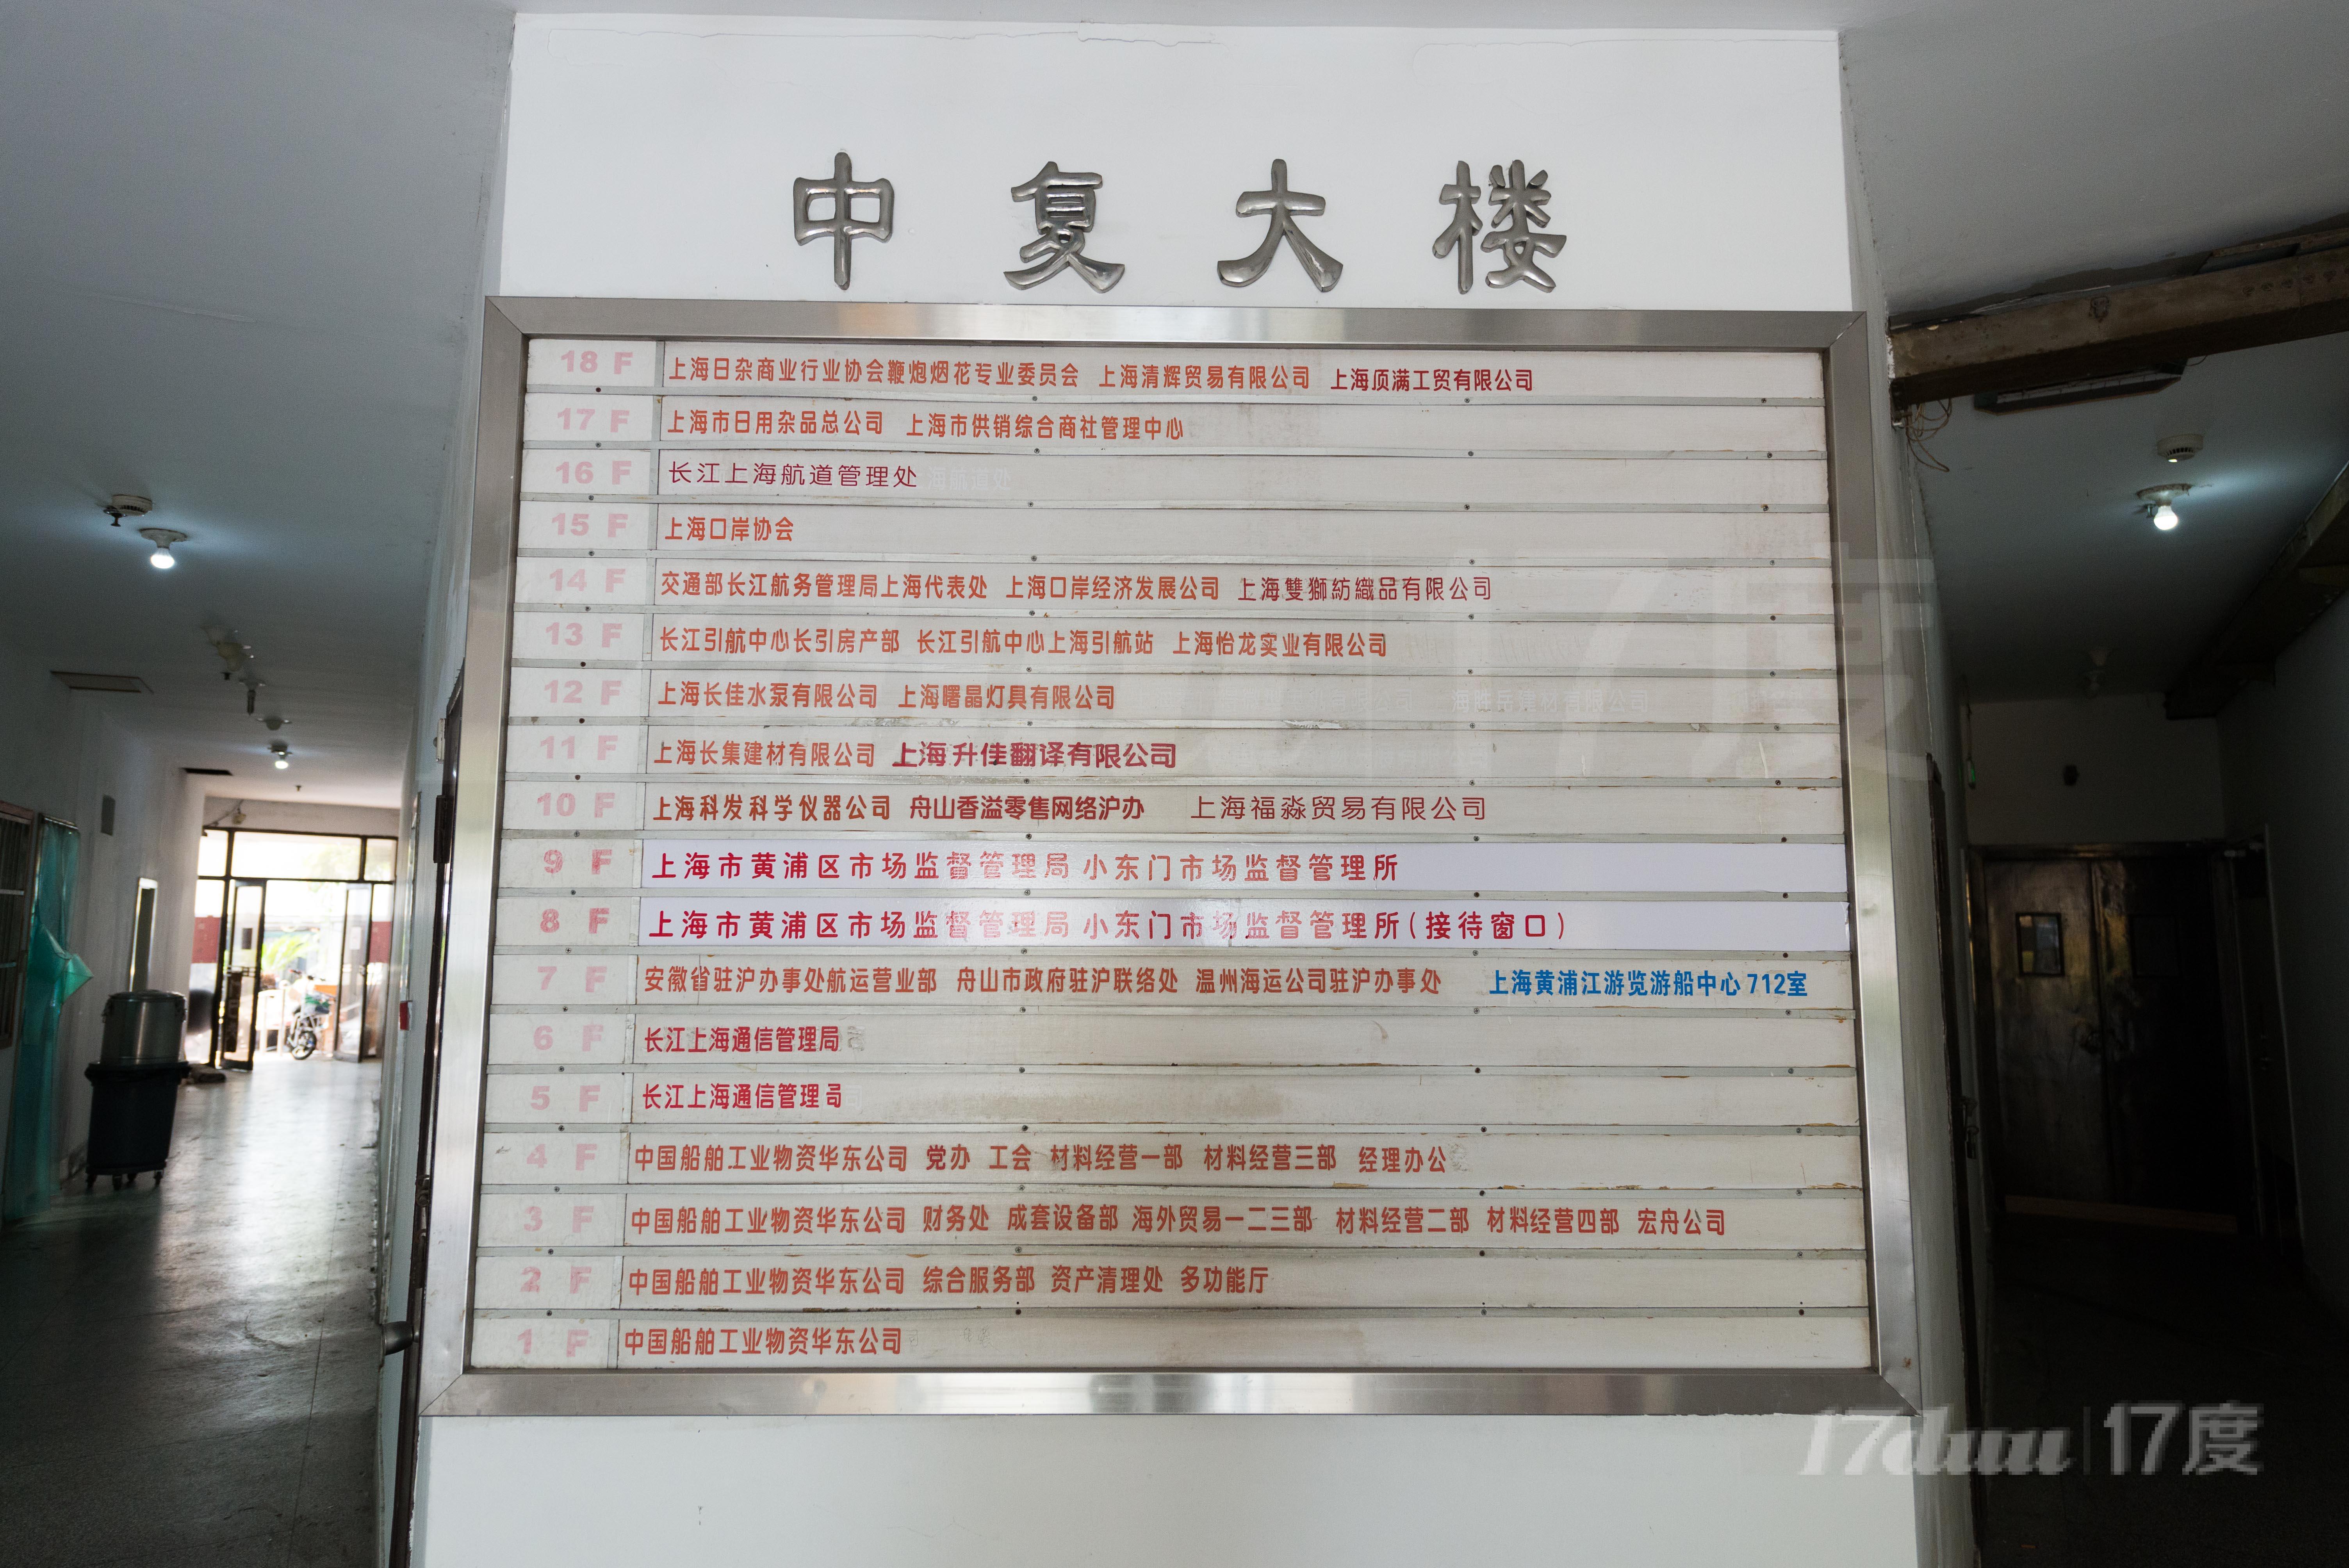 中复大楼
18 F 上海日杂商业行业协会鞭炮烟花专业委员会 上海清辉贸易有限公司 上海顶满工贸有限公司
17 F 上海市日用杂品总公司 上海市供销综合商社管理中心
16 F 长江上海航道管理处
15 F 上海口岸协会
14 F 交通部长江航务管理局上海代表处 上海口岸经济发展公司 上海雙獅紡織品有限公司
13 F 长江引航中心长引房产部 长江引航中心上海引航站 上海怡龙实业有限公司
12 F 上海长佳水泵有限公司 上海曙晶灯具有限公司
11 F 上海长集建材有限公司 上海升佳翻译有限公司
10 F 上海科发科学仪器公司 舟山香溢零售网络沪办 上海福淼贸易有限公司
9 F 上海市黄浦区市场监督管理局 小东门市场监督管理所
8 F 上海市黄浦区市场监督管理局 小东门市场监督管理所(接待窗口)
7 F 安徽省驻沪办事处航运营业部 舟山市政府驻沪联络处 温州海运公司驻沪办事处 上海黄浦江游览游船中心 712室
6 F 长江上海通信管理局
5 F 长江上海通信管理司
4 F 中国船舶工业物资华东公司 党办 工会 材料经营一部 材料经营三部 经理办公
3 F 中国船舶工业物资华东公司 财务处 成套设备部 海外贸易一二三部 材料经营二部 材料经营四部 宏舟公司
2 F 中国船舶工业物资华东公司 综合服务部 资产清理处 多功能厅
1 F 中国船舶工业物资华东公司
17duu 17度